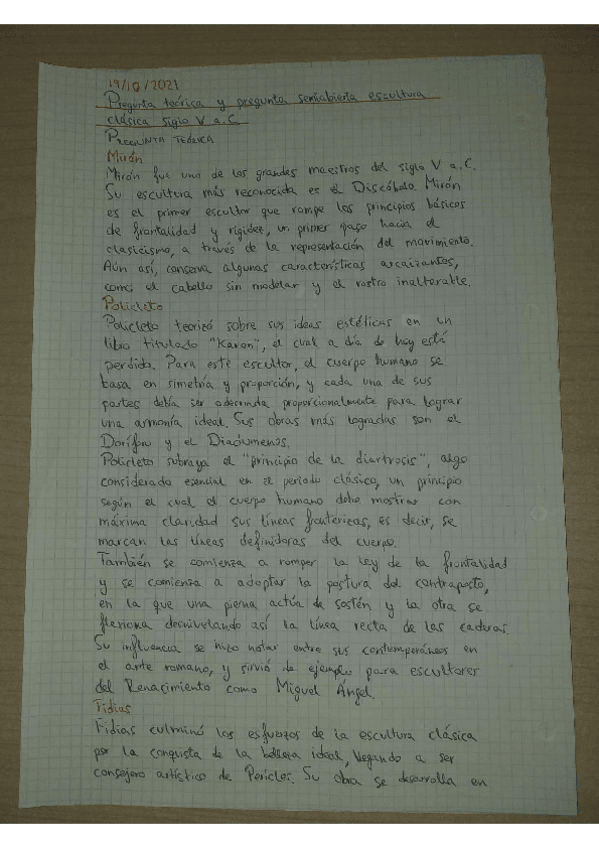 19/10/2021
Pregunta teórica y pregunta semiabierta escultura
clásica siglo V a.C
PREGUNTA TEÓRICA
Mirón
Mirón fue uno de los grandes maestros del siglo V a.C.
Su escultura más reconocida es el Discóbolo. Mirón
es el primer escultor que rompe los principios básicos
de frontalidad y rigidez, un primer paso hacia el
clasicismo, a través de la representación del movimiento.
Aún así, conserva algunas características arcaizantes,
como el cabello sin modelar y el rostro inalterable.
Policleto
Policleto teorizó sobre sus ideas estéticas en un
libro titulado "Kanon", el cual a día de hoy está
perdido. Para este escultor, el cuerpo humano se
basa en simetría y proporción, y cada una de sus
partes debía ser adecuada proporcionalmente para lograr
una armonía ideal. Sus obras más logradas son el
Doríforo y el Diadumenos.
Policleto subraya el "principio de la diartrosis", algo
considerado esencial en el periodo clásico, un principio
según el cual el cuerpo humano debe mostrar con
máxima claridad sus líneas fronterizas, es decir, se
marcan las líneas definidoras del cuerpo.
También se comienza a romper la ley de la frontalidad
y se comienza a adoptar la postura del contraposto,
en la que una pierna actúa de sostén y la otra se
flexiona desnivelando así la línea recta de las caderas.
Su influencia se hizo notar entre sus contemporáneos en
el arte romano, y sirvió de ejemplo para escultores
del Renacimiento como Miguel Ángel.
Fidias
Fidias culminó los esfuerzos de la escultura clásica
por la conquista de la belleza ideal, llegando a ser
consejero artístico de Pericles. Su obra se desarrolla en